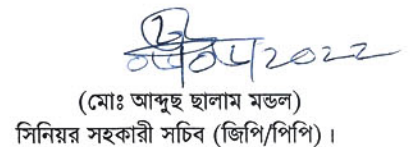 2022
(মোঃ আব্দুছ ছালাম মন্ডল)
সিনিয়র সহকারী সচিব (জিপি/পিপি)।